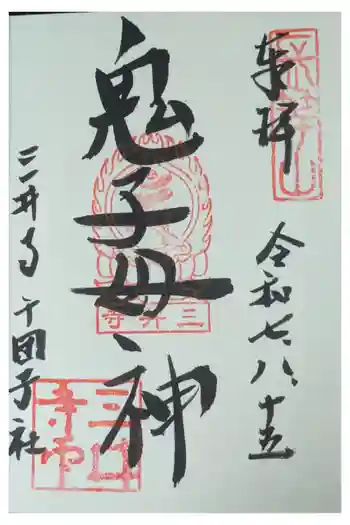 奉拝
令和七、八、十五
鬼子母神
三井寺
三井寺 千団子社
三井寺印